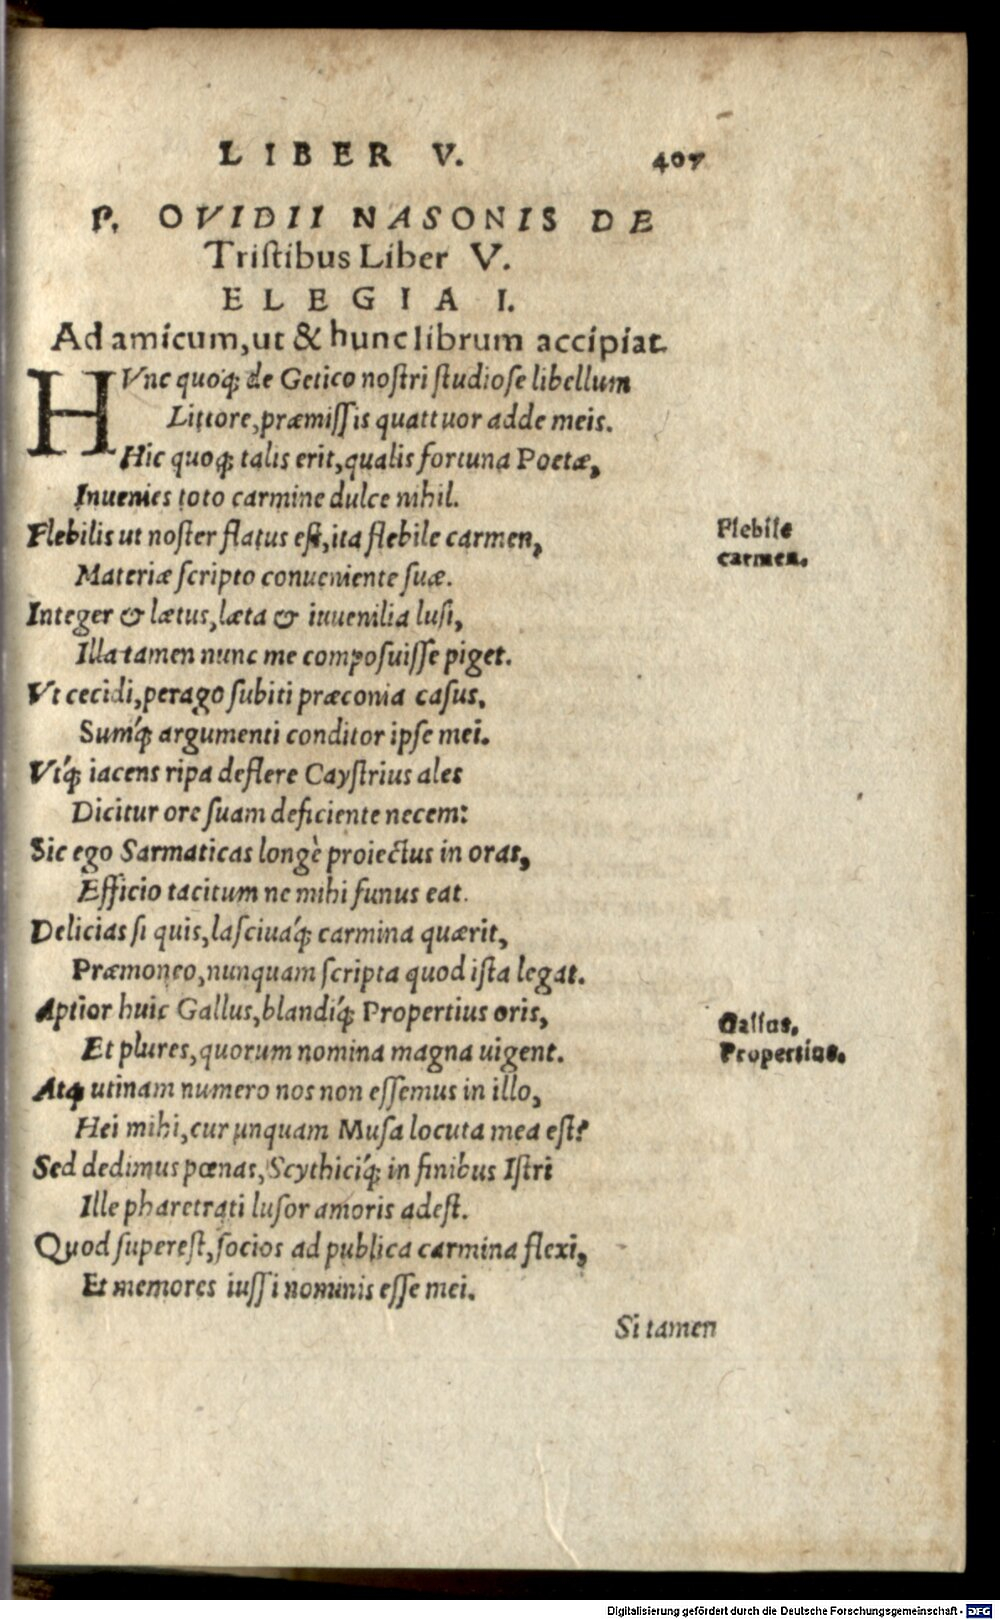 LIBER V. 407
P. OVIDII NASONIS DE
Tristibus Liber V.
ELEGIA I.
Ad amicum, ut & hunc librum accipiat.
HVnc quoq; de Getico nostri studiose libellum
Littore, præmissis quattuor adde meis.
Hic quoq; talis erit, qualis fortuna Poetæ,
Inuenies toto carmine dulce nihil.
Flebilis ut noster flatus est, ita flebile carmen,
Flebile
carmen.
Materiæ scripto conueniente suæ.
Integer & lætus, læta & iuuenilia lusi,
Illa tamen nunc me composuisse piget.
Vt cecidi, perago subiti præconia casus,
Sumq́; argumenti conditor ipse mei.
Vtq́; iacens ripa deflere Caystrius ales
Dicitur ore suam deficiente necem:
Sic ego Sarmaticas longè proiectus in oras,
Efficio tacitum ne mihi funus eat.
Delicias si quis, lasciuaq́; carmina quærit,
Præmoneo, nunquam scripta quod ista legat.
Aptior huic Gallus, blandiq́; Propertius oris,
Gallus,
Propertius.
Et plures, quorum nomina magna uigent.
Atq; utinam numero nos non essemus in illo,
Hei mihi, cur unquam Musa locuta mea est?
Sed dedimus pœnas, Scythiciq́; in finibus Istri
Ille pharetrati lusor amoris adest.
Quod superest, socios ad publica carmina flexi,
Et memores iussi nominis esse mei.
Si tamen
Digitalisierung gefördert durch die Deutsche Forschungsgemeinschaft - DFG